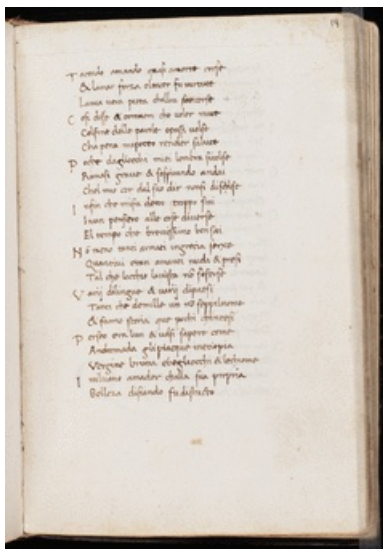 14
T acendo amando quasi amorte corse
& lamar forza eltacer fu virtute
La mia vera pieta challui soccorse
C osi disse & comuom che voler mute
Col fine delle parole passi volse
Cha pena render salute
P oche dagliocchi miei lombra sivolse
Rimasi grave & sospirando andai
Chel mio cor dal suo dir non si disciolse
I nfin che mifu detto troppo stai
In un pensiero alle cose diverse
El tempo che brevissimo ben sai
N ō meno tanti armati ingrecia serxe
Quantivi erano amanti nudi & presi
Tal che locchio lavista nō sofferse
V arij dilingue & varij dipaesi
Tanto che dimille un nō seppilnome
& fanno storia que pochi chintesi
P erseo era lun & volsi sapere come
Andromada glipiacque inetiopia
Vergine bruna ebegliocchi & lechiome
I vilvano amador challa sua propria
Belleza disiando fu distructo